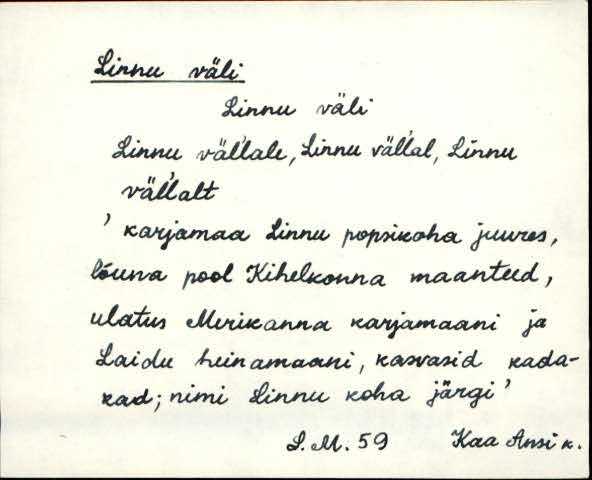 Linnu väli
Linnu väli
Linnu väl'l'ale, Linnu väl'l'al, Linnu
väl'l'alt
' karjamaa Linnu popsikoha juures,
lõuna pool Kihelkonna maanteed,
ulatus Merikanna karjamaani ja
Laidu heinamaani, kasvasid kada-
kad; nimi Linnu koha järgi'
L.M. 59 Kaa Ansi k.